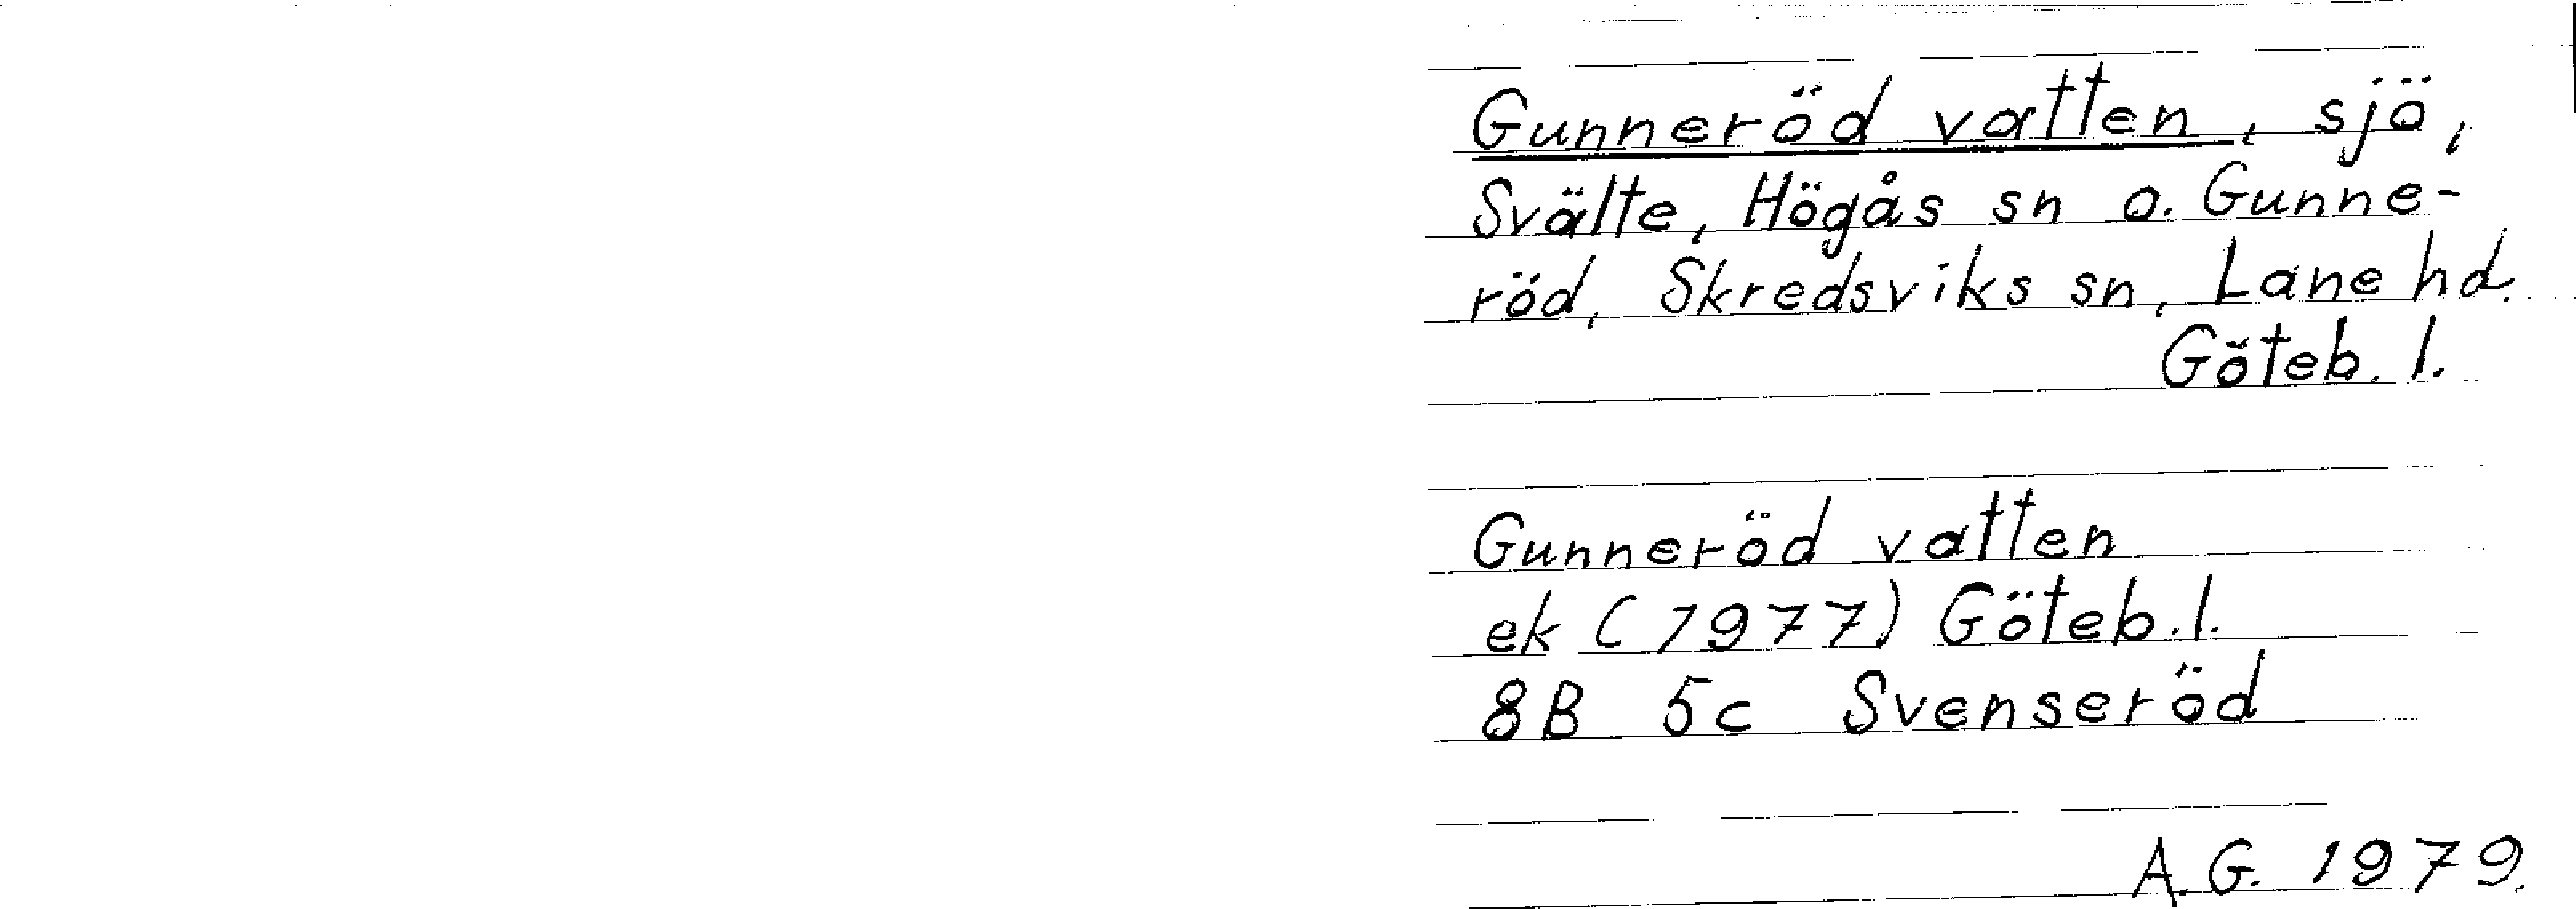 Gunneröd vatten, sjö,
Svälte, Högås sn o. Gunne-
röd, Skredsviks sn, Lane hd.
Göteb. l.
Gunneröd vatten
ek (1977) Göteb. l.
8B 5c Svenseröd
A.G. 1979.